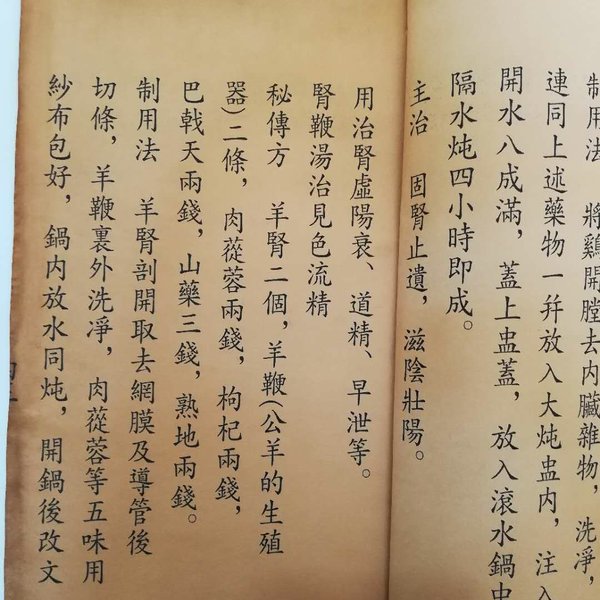 制用法 將鷄開膛去内臟雜物，洗淨，
連同上述藥物一幷放入大炖盅内，注入
開水八成滿，蓋上盅蓋，放入滾水鍋中
隔水炖四小時即成。
主治 固腎止遺，滋陰壯陽。
用治腎虛陽衰、道精、早泄等。
腎鞭湯治見色流精
秘傳方 羊腎二個，羊鞭(公羊的生殖
器)二條，肉蓯蓉兩錢，枸杞兩錢，
巴戟天兩錢，山藥三錢，熟地兩錢。
制用法 羊腎剖開取去網膜及導管後
切條，羊鞭裏外洗凈，肉蓯蓉等五味用
紗布包好，鍋内放水同炖，開鍋後改文